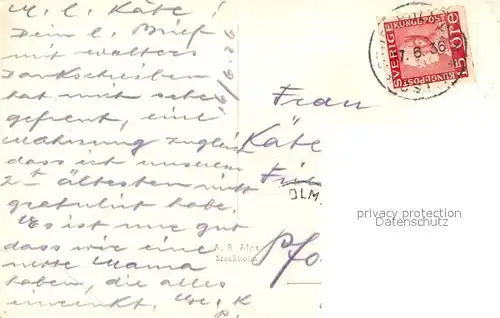 M. l. Käte!
Dein l. Brief
mit Walters
Dankschreiben
hat mich sehr
gefreut, eine
Mahnung zugleich
dass ich unserem
2t ältesten nicht
gratuliert habe.
Es ist nur gut
dass wir eine
nette Mama
haben, die alles
einrenkt.
6/6.36
Frau
Käte
DLM
Pfo
A. B. Alex
Stockholm
SVERIGE KUNGL POST
KUNGL POST
15 ÖRE
7.6.36
privacy protection
Datenschutz